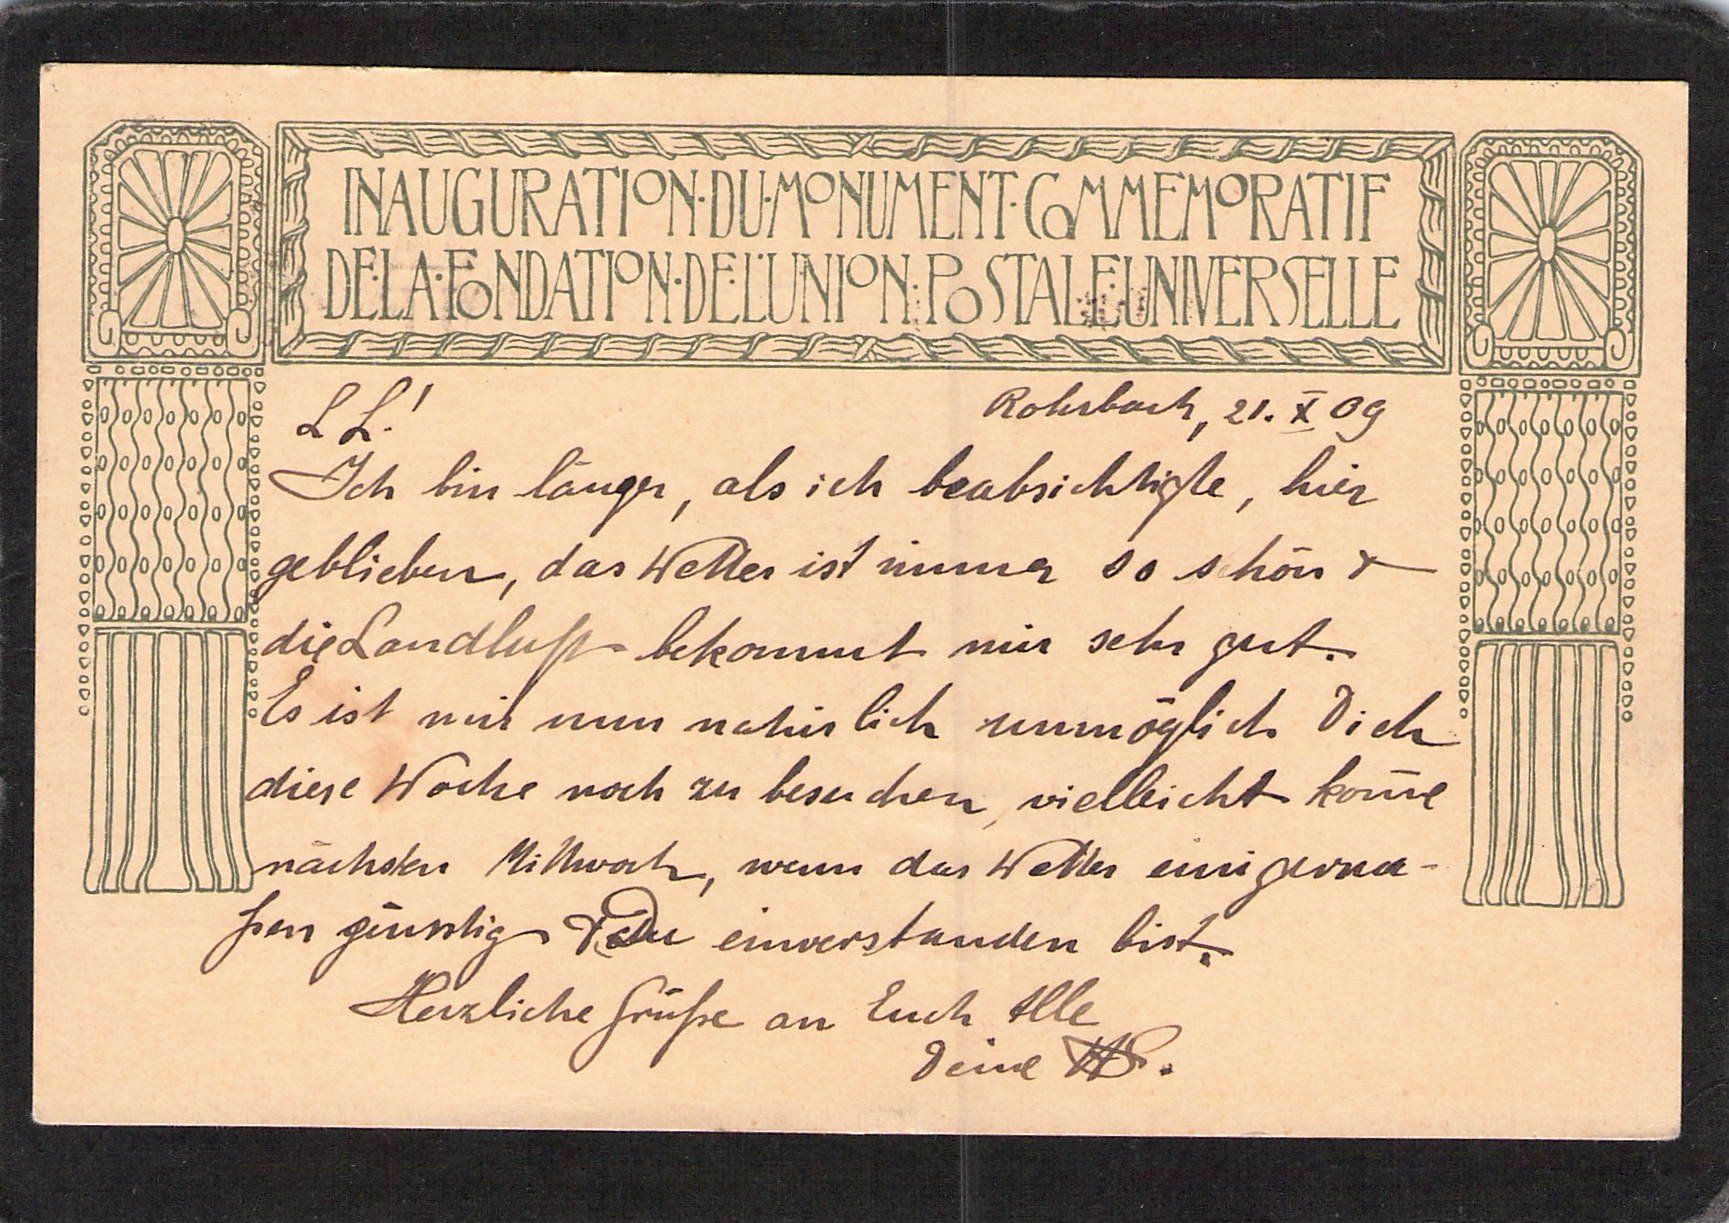 INAUGURATION·DU·MONUMENT·COMMEMORATIF
DE·LA·FONDATION·DE·L'UNION·POSTALE·UNIVERSELLE
L L.!
Rohrbach, 21. X 09
Ich bin länger, als ich beabsichtigte, hier
geblieben, das Wetter ist immer so schön &
die Landluft bekommt mir sehr gut.
Es ist mir nun natürlich unmöglich Dich
diese Woche noch zu besuchen, vielleicht kom̄e
nächsten Mittwoch, wenn das Wetter einigerma-
ßen günstig & Du einverstanden bist.
Herzliche Grüße an Euch Alle
Deine